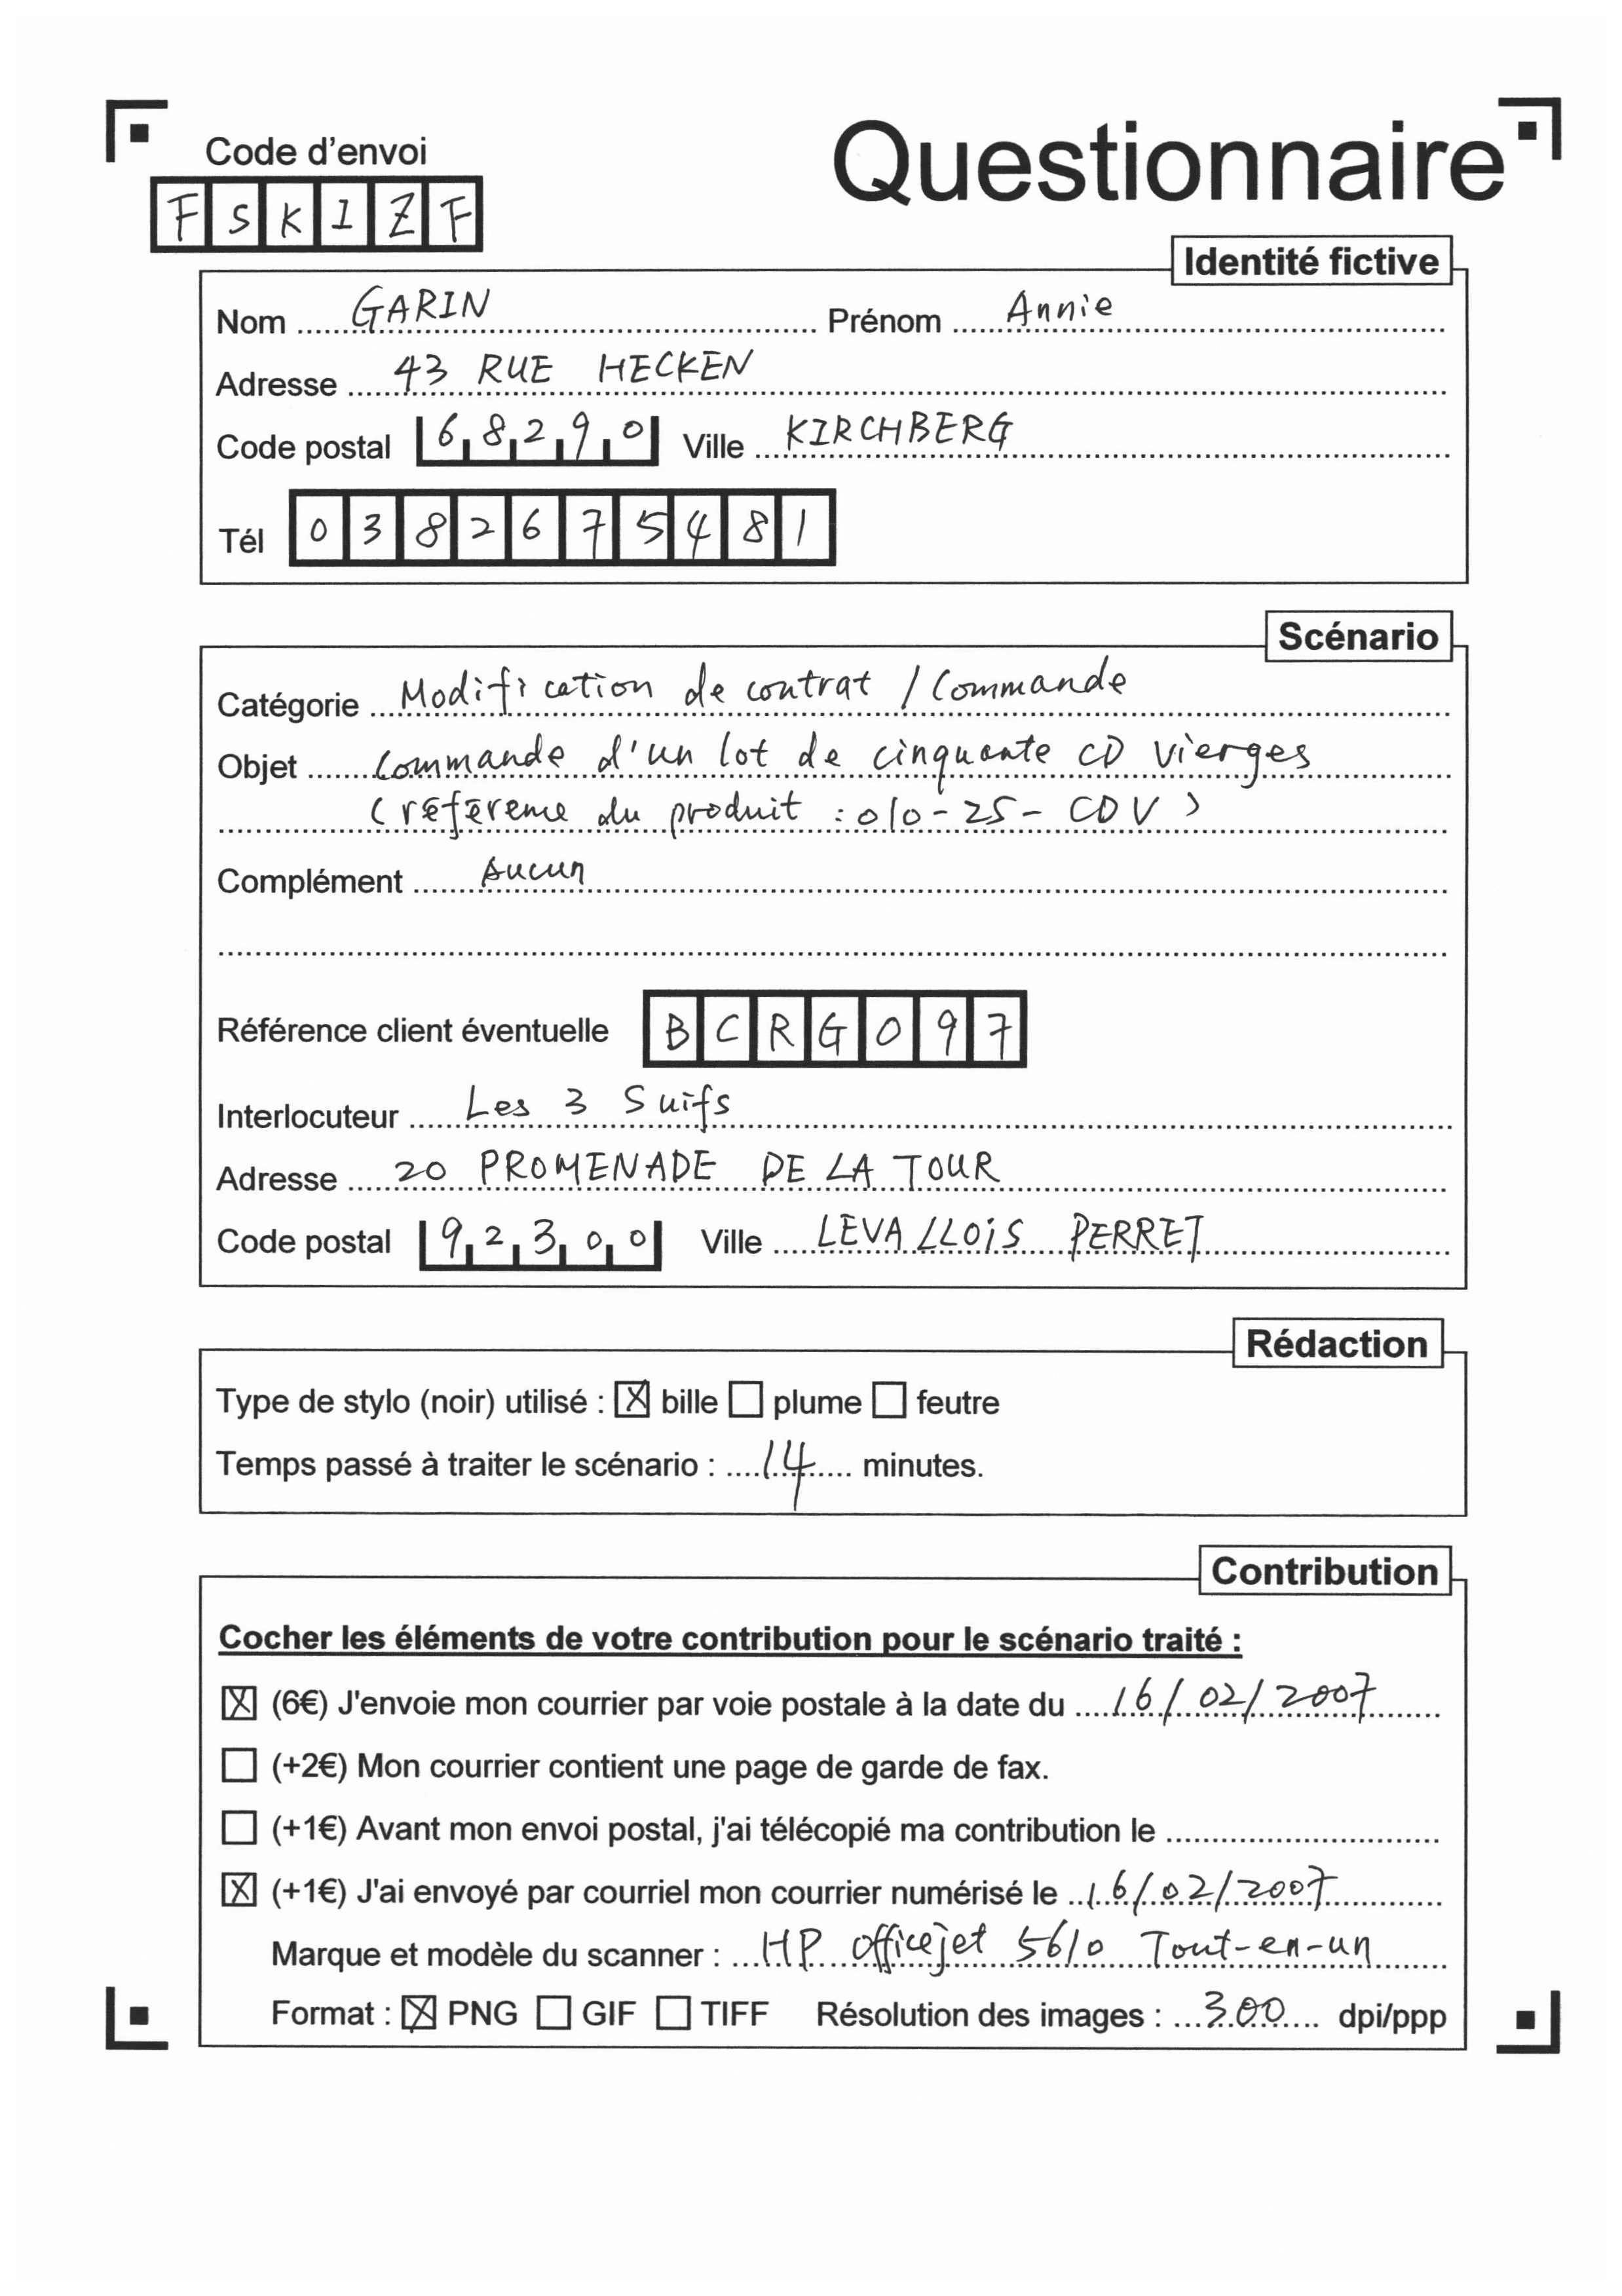 Code d'envoi
Questionnaire
FSKIZF
Identité fictive
Nom GARIN Prénom Annie
Adresse 43 RUE HECKEN
Code postal 68290 Ville KIRCHBERG
Tél 0382675481
Scénario
Catégorie Modification de contrat / Commande
Objet Commande d'un lot de cinquante CD vierges
(référence du produit : 010-25-CDV)
Complément Aucun
Référence client éventuelle BCRG097
Interlocuteur Les 3 Suifs
Adresse 20 PROMENADE DE LA TOUR
Code postal 92300 Ville LEVALLOIS PERRET
Rédaction
Type de stylo (noir) utilisé : ☒ bille ☐ plume ☐ feutre
Temps passé à traiter le scénario : 14 minutes.
Contribution
Cocher les éléments de votre contribution pour le scénario traité :
☒ (6€) J'envoie mon courrier par voie postale à la date du 16/02/2007
☐ (+2€) Mon courrier contient une page de garde de fax.
☐ (+1€) Avant mon envoi postal, j'ai télécopié ma contribution le
☒ (+1€) J'ai envoyé par courriel mon courrier numérisé le 16/02/2007
Marque et modèle du scanner : HP officejet 5610 Tout-en-un
Format : ☒ PNG ☐ GIF ☐ TIFF Résolution des images : 300 dpi/ppp